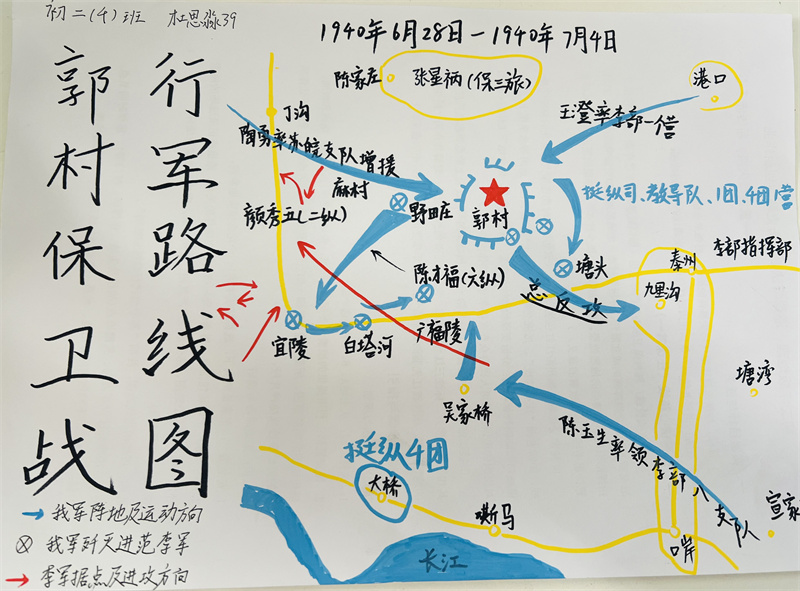 初二(4)班 杜思淼39
郭村保卫战
行军路线图
1940年6月28日—1940年7月4日
陈家庄
张星炳(保三旅)
港口
丁沟
王澄率李部一个营
陶勇率苏皖支队增援
麻村
颜秀五(二纵)
野田庄
郭村
挺纵司、教导队、1团、4团1营
陈才福(六纵)
塘头
总反攻
泰州
李部指挥部
九里沟
宜陵
白塔河
广福陵
塘湾
吴家桥
陈玉生率领李部八支队
挺纵4团
大桥
嘶马
口岸
宣家
长江
我军阵地及运动方向
我军歼灭进范李军
李军据点及进攻方向